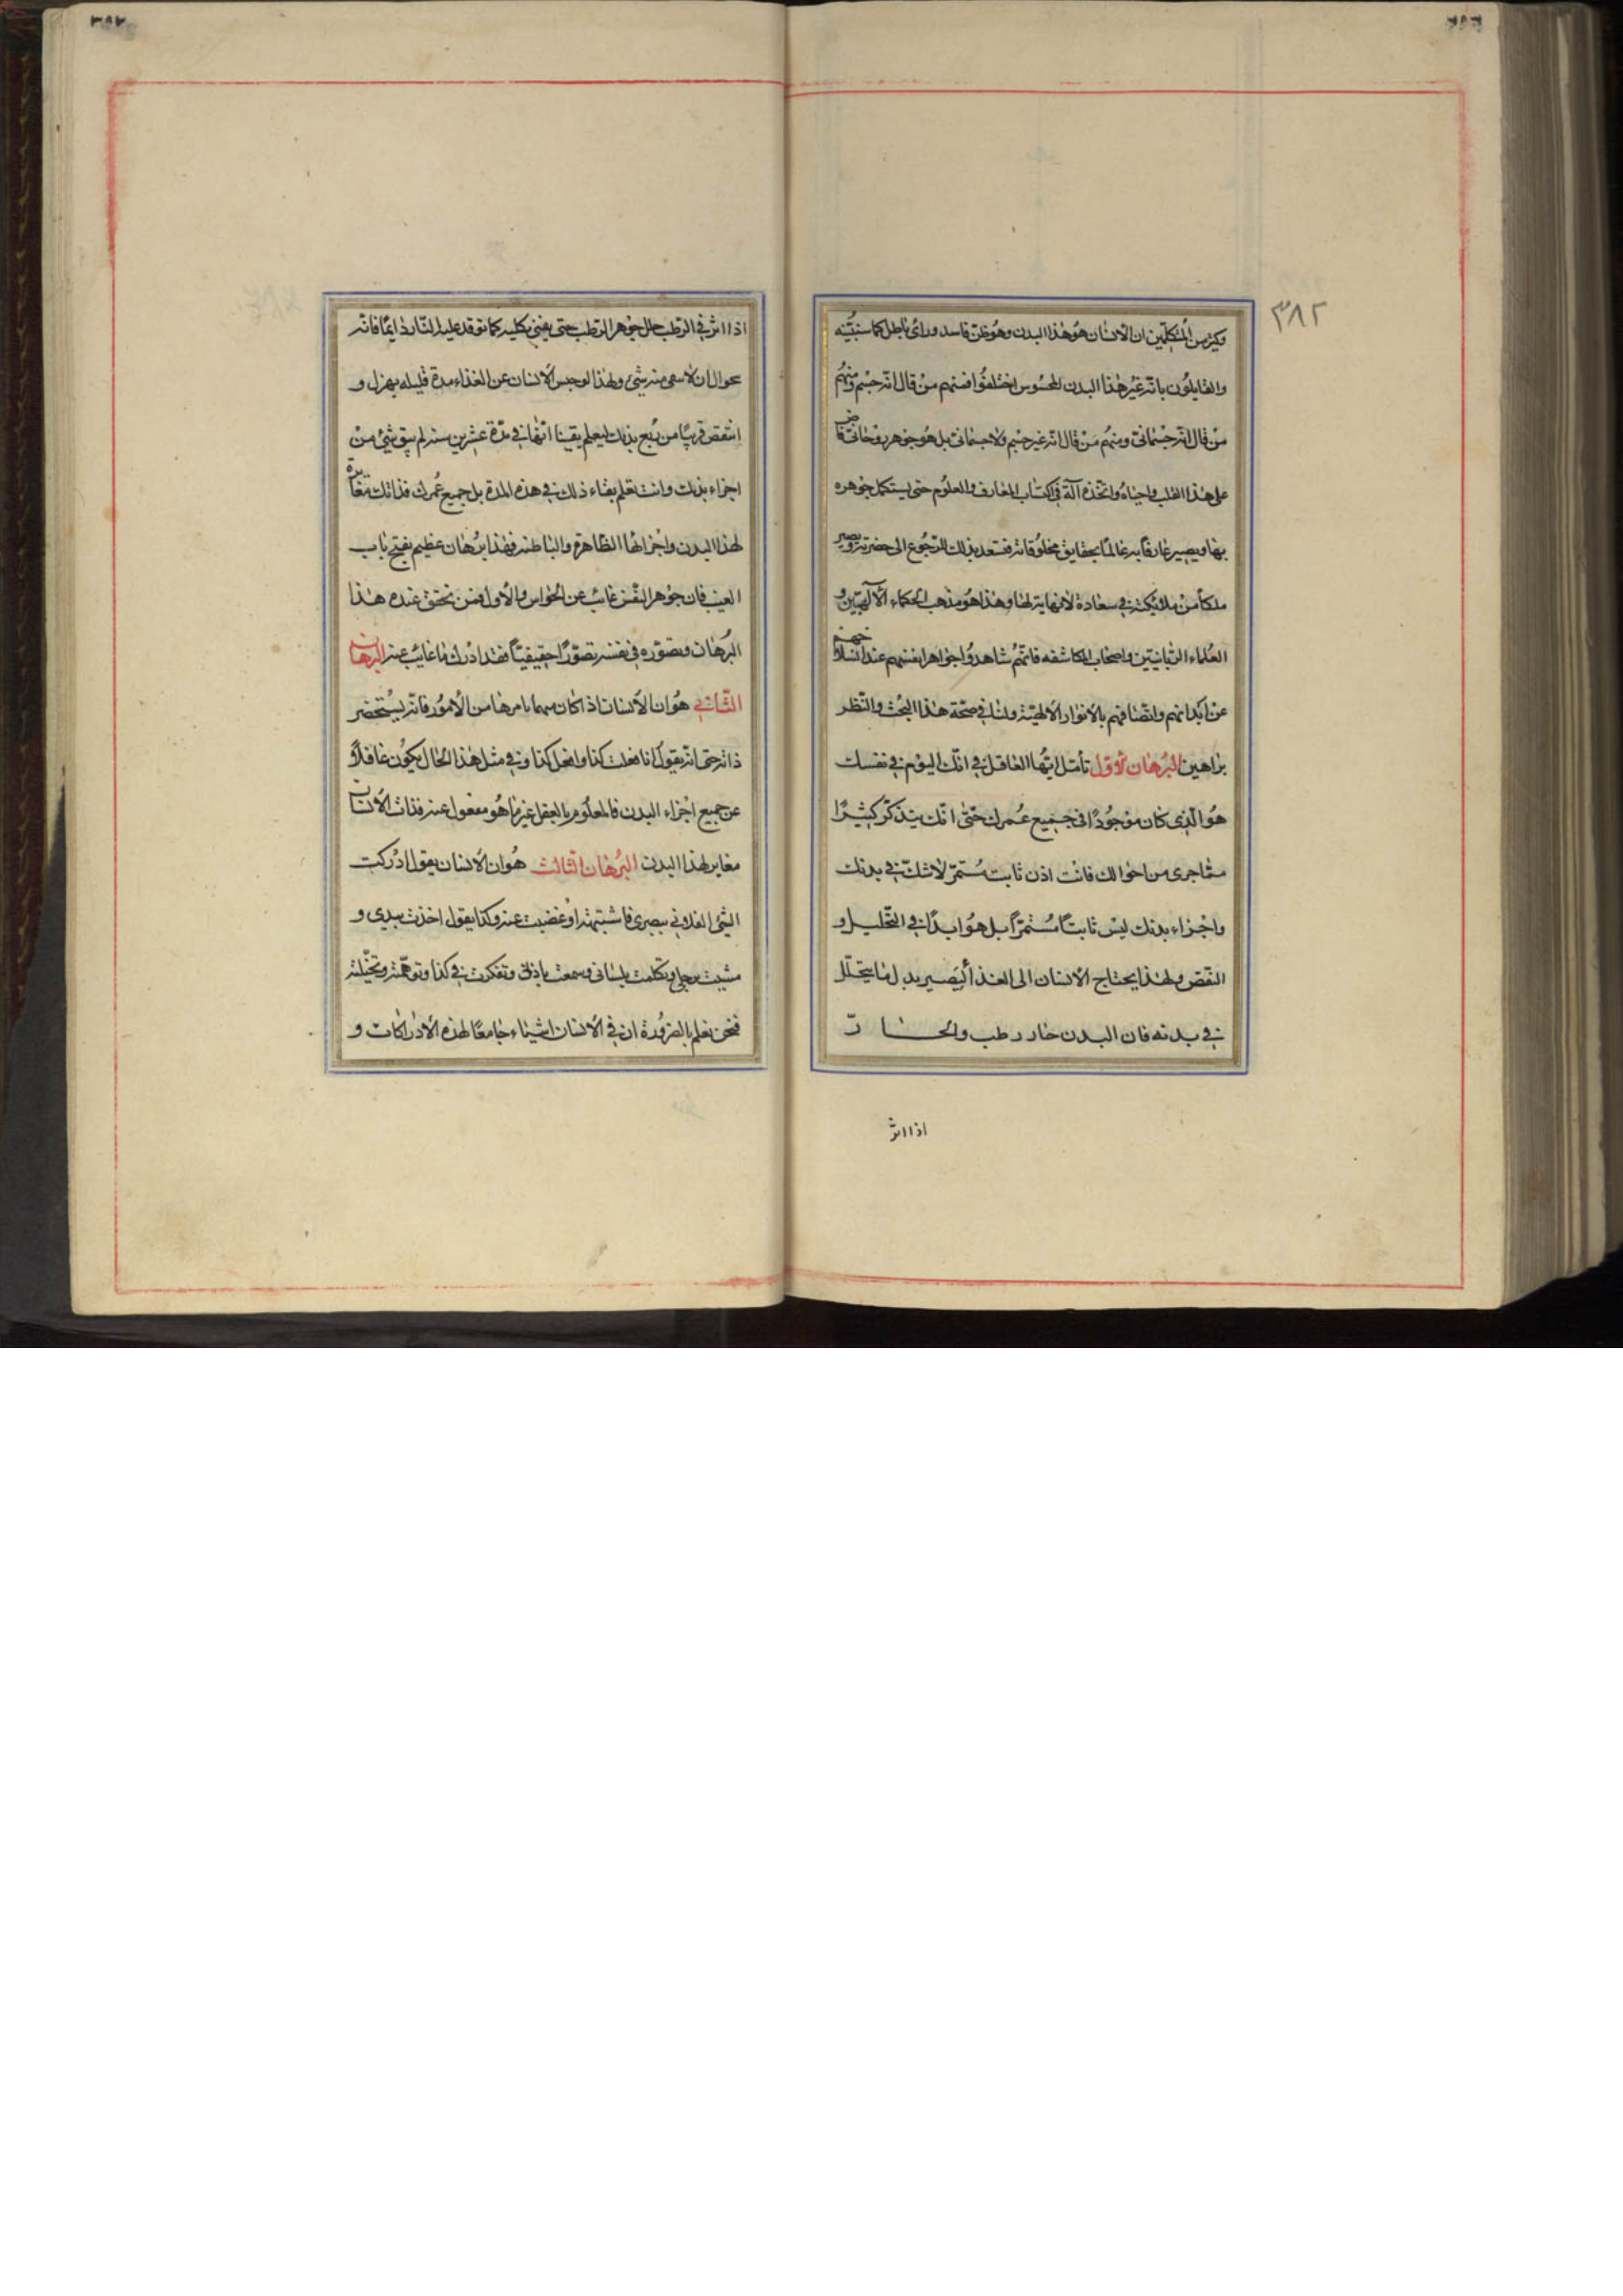 ٣٨٢
وكثير من المتكلمين ان الانسان هو هذا البدن وهو ظن فاسد وراى باطل كما سنبينه
والقايلون بانه غير هذا البدن المحسوس اختلفوا فمنهم من قال انه جسم ومنهم
من قال انه جسمانى ومنهم من قال انه غير جسم ولا جسمانى بل هو جوهر روحانى فاض
على هذا القلب واحياه واتخذه آلة فى اكتساب المعارف والعلوم حتى يستكمل جوهره
بها ويصير عارفا بربه عالما بحقايق مخلوقاته فتستعد بذلك الرجوع الى حضرته ويصير
ملكا من ملائكته فى سعادة لا نهاية لها وهذا هو مذهب الحكماء الآلهيين و
العلماء الربانيين واصحاب المكاشفه فانهم شاهدوا جواهر انفسهم عند انسلاخهم
عن ابدانهم واتصافهم بالانوار الالهية ولنا فى صحة هذا البحث والنظر
براهين البرهان الاول تأمل ايها العاقل فى انك اليوم فى نفسك
هو الذى كان موجودا فى جميع عمرك حتى انك يتذكر كثيرا
مما جرى من احوالك فانت اذن ثابت مستمر لا شك فى بدنك
واجزاء بدنك ليس ثابتا مستمرا بل هو ابدا فى التحليل و
النقص ولهذا يحتاج الانسان الى الغذا ليصير بدل ما يتحلل
فى بدنه فان البدن حار رطب والحار
اذا اثر
اذا اثر فى الرطب حلل جوهر الرطب حتى يفنى بكليه كما توقد عليه النار دايما فانه
الى ان لا سقى منه شى ولهذا لو حبس الانسان عن الغذاء مدة قليله يهزل و
انتقص قريبا من ربع بدنك ليعلم يقينا انها فى مدة عشرين سنه لم يبق شئ من
اجزاء بدنك وانت تعلم بقاء ذلك فى هذه المدة بل جميع عمرك فذاتك مغايرة
لهذا البدن واجزائها الظاهرة والباطنه فهذا برهان عظيم يفتح باب
الغيب فان جوهر النفس غائب عن الحواس والاول فمن تحقق عنده هذا
البرهان وتصوره فى نفسه تصورا حقيقيا فقد ادرك ما غائب عنه البرهان
الثانى هو ان الانسان اذا كان مهما بامرها من الامور فانه يستحضر
ذاته حتى انه يقول انا فعلت كذا وافعل كذا وفى مثل هذا الحال يكون غافلا
عن جميع اجزاء البدن فالمعلوم بالعقل غير ما هو مغفول عنه فذات الانسان
مغاير لهذا البدن البرهان الثالث هو ان الانسان يقول ادركت
الشئ الفلانى ببصرى فاشتهيته او غضبت عنه وكذا يقول اخذت بيدى و
مشيت برجلى وتكلمت بلسانى وسمعت باذنى وتفكرت فى كذا وتوهمته وتخيلته
فنحن نعلم بالضرورة ان فى الانسان اشياء جامعا لهذه الادراكات و